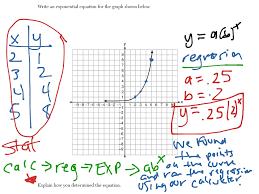 Write an exponential equation for the graph shown below
x y
2 1
3 2
4 4
5 8
y = a(b)^x
regression
a = .25
b = .2
y = .25(2)^x
Stat
calc → reg → EXP → ab^x
We found
the points
on the curve
and ran the regression
using our calculator.
Explain how you determined the equation.